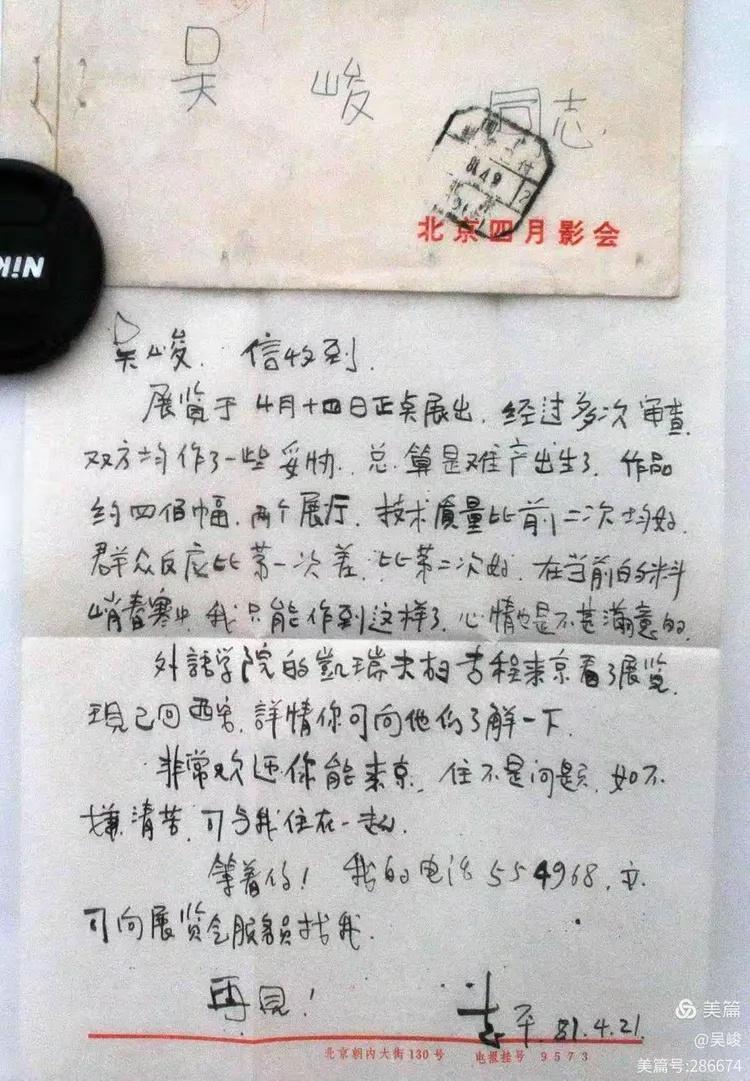 吴 峻 同志.
81.4.9
北京四月影会
NiK
吴峻. 信收到.
展览于4月十四日正点展出. 经过多次审查.
双方均作了一些妥协. 总算是难产出生了. 作品
约四佰幅. 两个展厅. 技术质量比前二次均好.
群众反应比第一次差. 比第二次好. 在当前的料
峭春寒中. 我只能作到这样了. 心情也是不甚满意的.
外語学院的凱瑞夫妇专程来京看了展览.
現已回西安. 詳情你可向他们了解一下.
非常欢迎你能来京. 住不是问题. 如不
嫌清苦. 可与我住在一起.
等着你! 我的电话554968. 亦
可向展览会服务员找我.
再见!
志平. 81.4.21.
北京朝内大街130号 电报挂号 9573
美篇
@吴峻
美篇号:286674